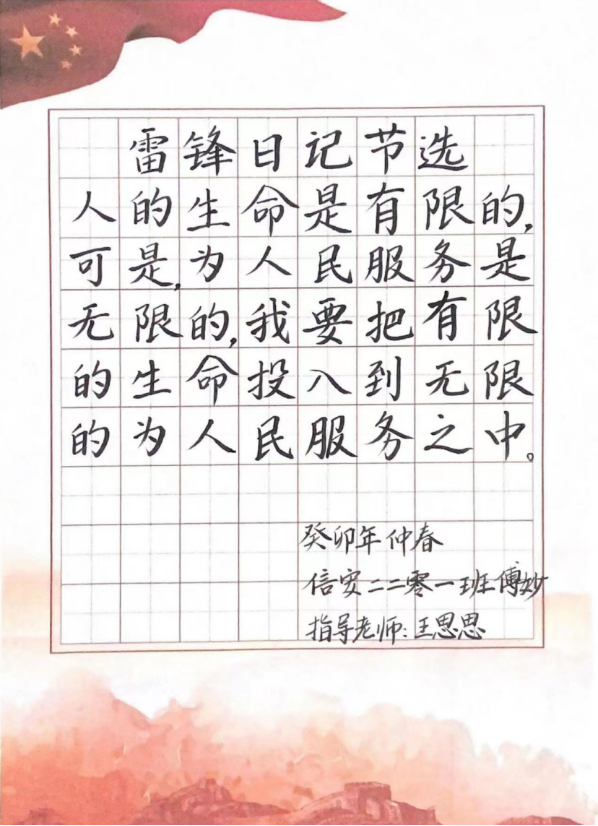 雷锋日记节选
人的生命是有限的,
可是,为人民服务是
无限的,我要把有限
的生命投入到无限
的为人民服务之中。
癸卯年仲春
信安二二零一班傅妙
指导老师:王思思